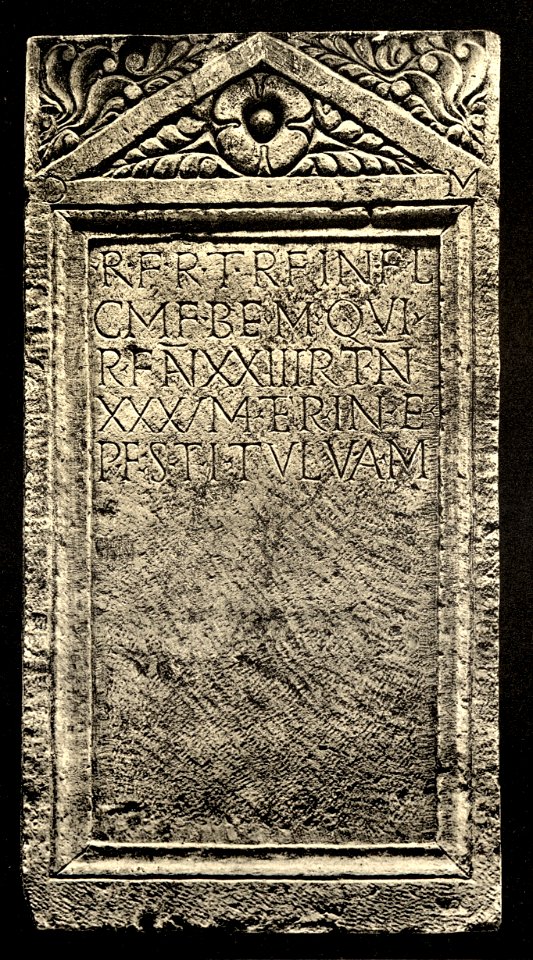 D M
R·F·R·T·R·F·IN·F·L
C·M·F·B·E·M·Q·VI·
R·F·AN XXIIII R·T·N
P·F·S·T·I·TVLV·A·M